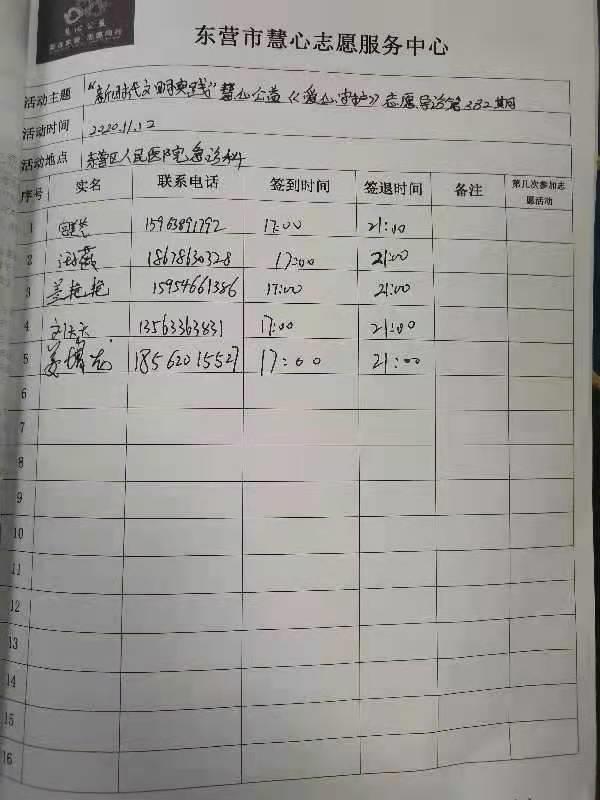 慧心公益
东营市慧心志愿服务中心
活动主题 “新时代文明实践”慧心公益《爱心守护》志愿导诊第332期
活动时间 2020.11.12
活动地点 东营区人民医院急诊科
序号 实名 联系电话 签到时间 签退时间 备注 第几次参加志愿活动
1 15963891792 17:00 21:00
2 18678630328 17:00 21:00
3 艳艳 15954661386 17:00 21:00
4 13563363831 17:00 21:00
5 姜 18562015527 17:00 21:00
6
7
8
9
10
11
12
13
14
15
16